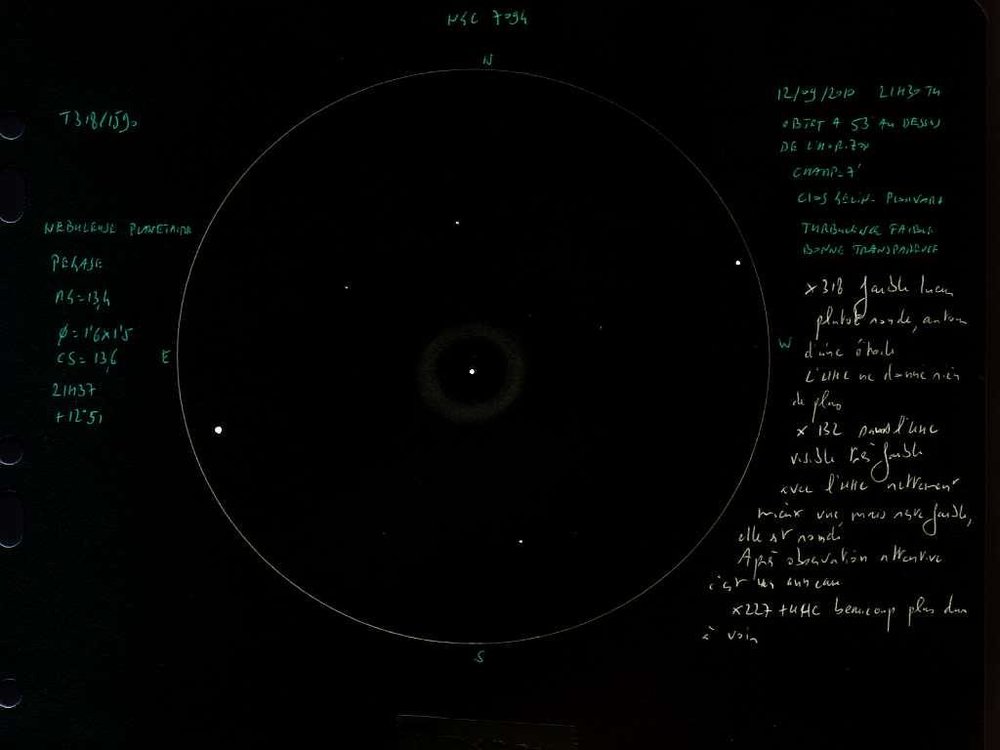 NGC 7094
N
T318/1590
NEBULEUSE PLANETAIRE
PEGASE
MG = 13,4
Ø = 1'6 x 1'5
CS = 13,6
21H37
+12°51
E
W
S
12/09/2010 21H30 TU
OBJET A 53 AU DESSUS
DE L'HORIZON
CHAMP = 7'
CLOS
TURBULENCE FAIBLE
BONNE TRANSPARENCE
x318 faible lueur
plutot ronde, autour
d'une étoile
L'UHC ne donne rien
de plus
x 132 sans l'UHC
visible très faible
avec l'UHC nettement
mieux vue, mais reste faible,
elle est ronde
Après observation attentive
c'est un anneau
x227 + UHC beaucoup plus dur
à voir